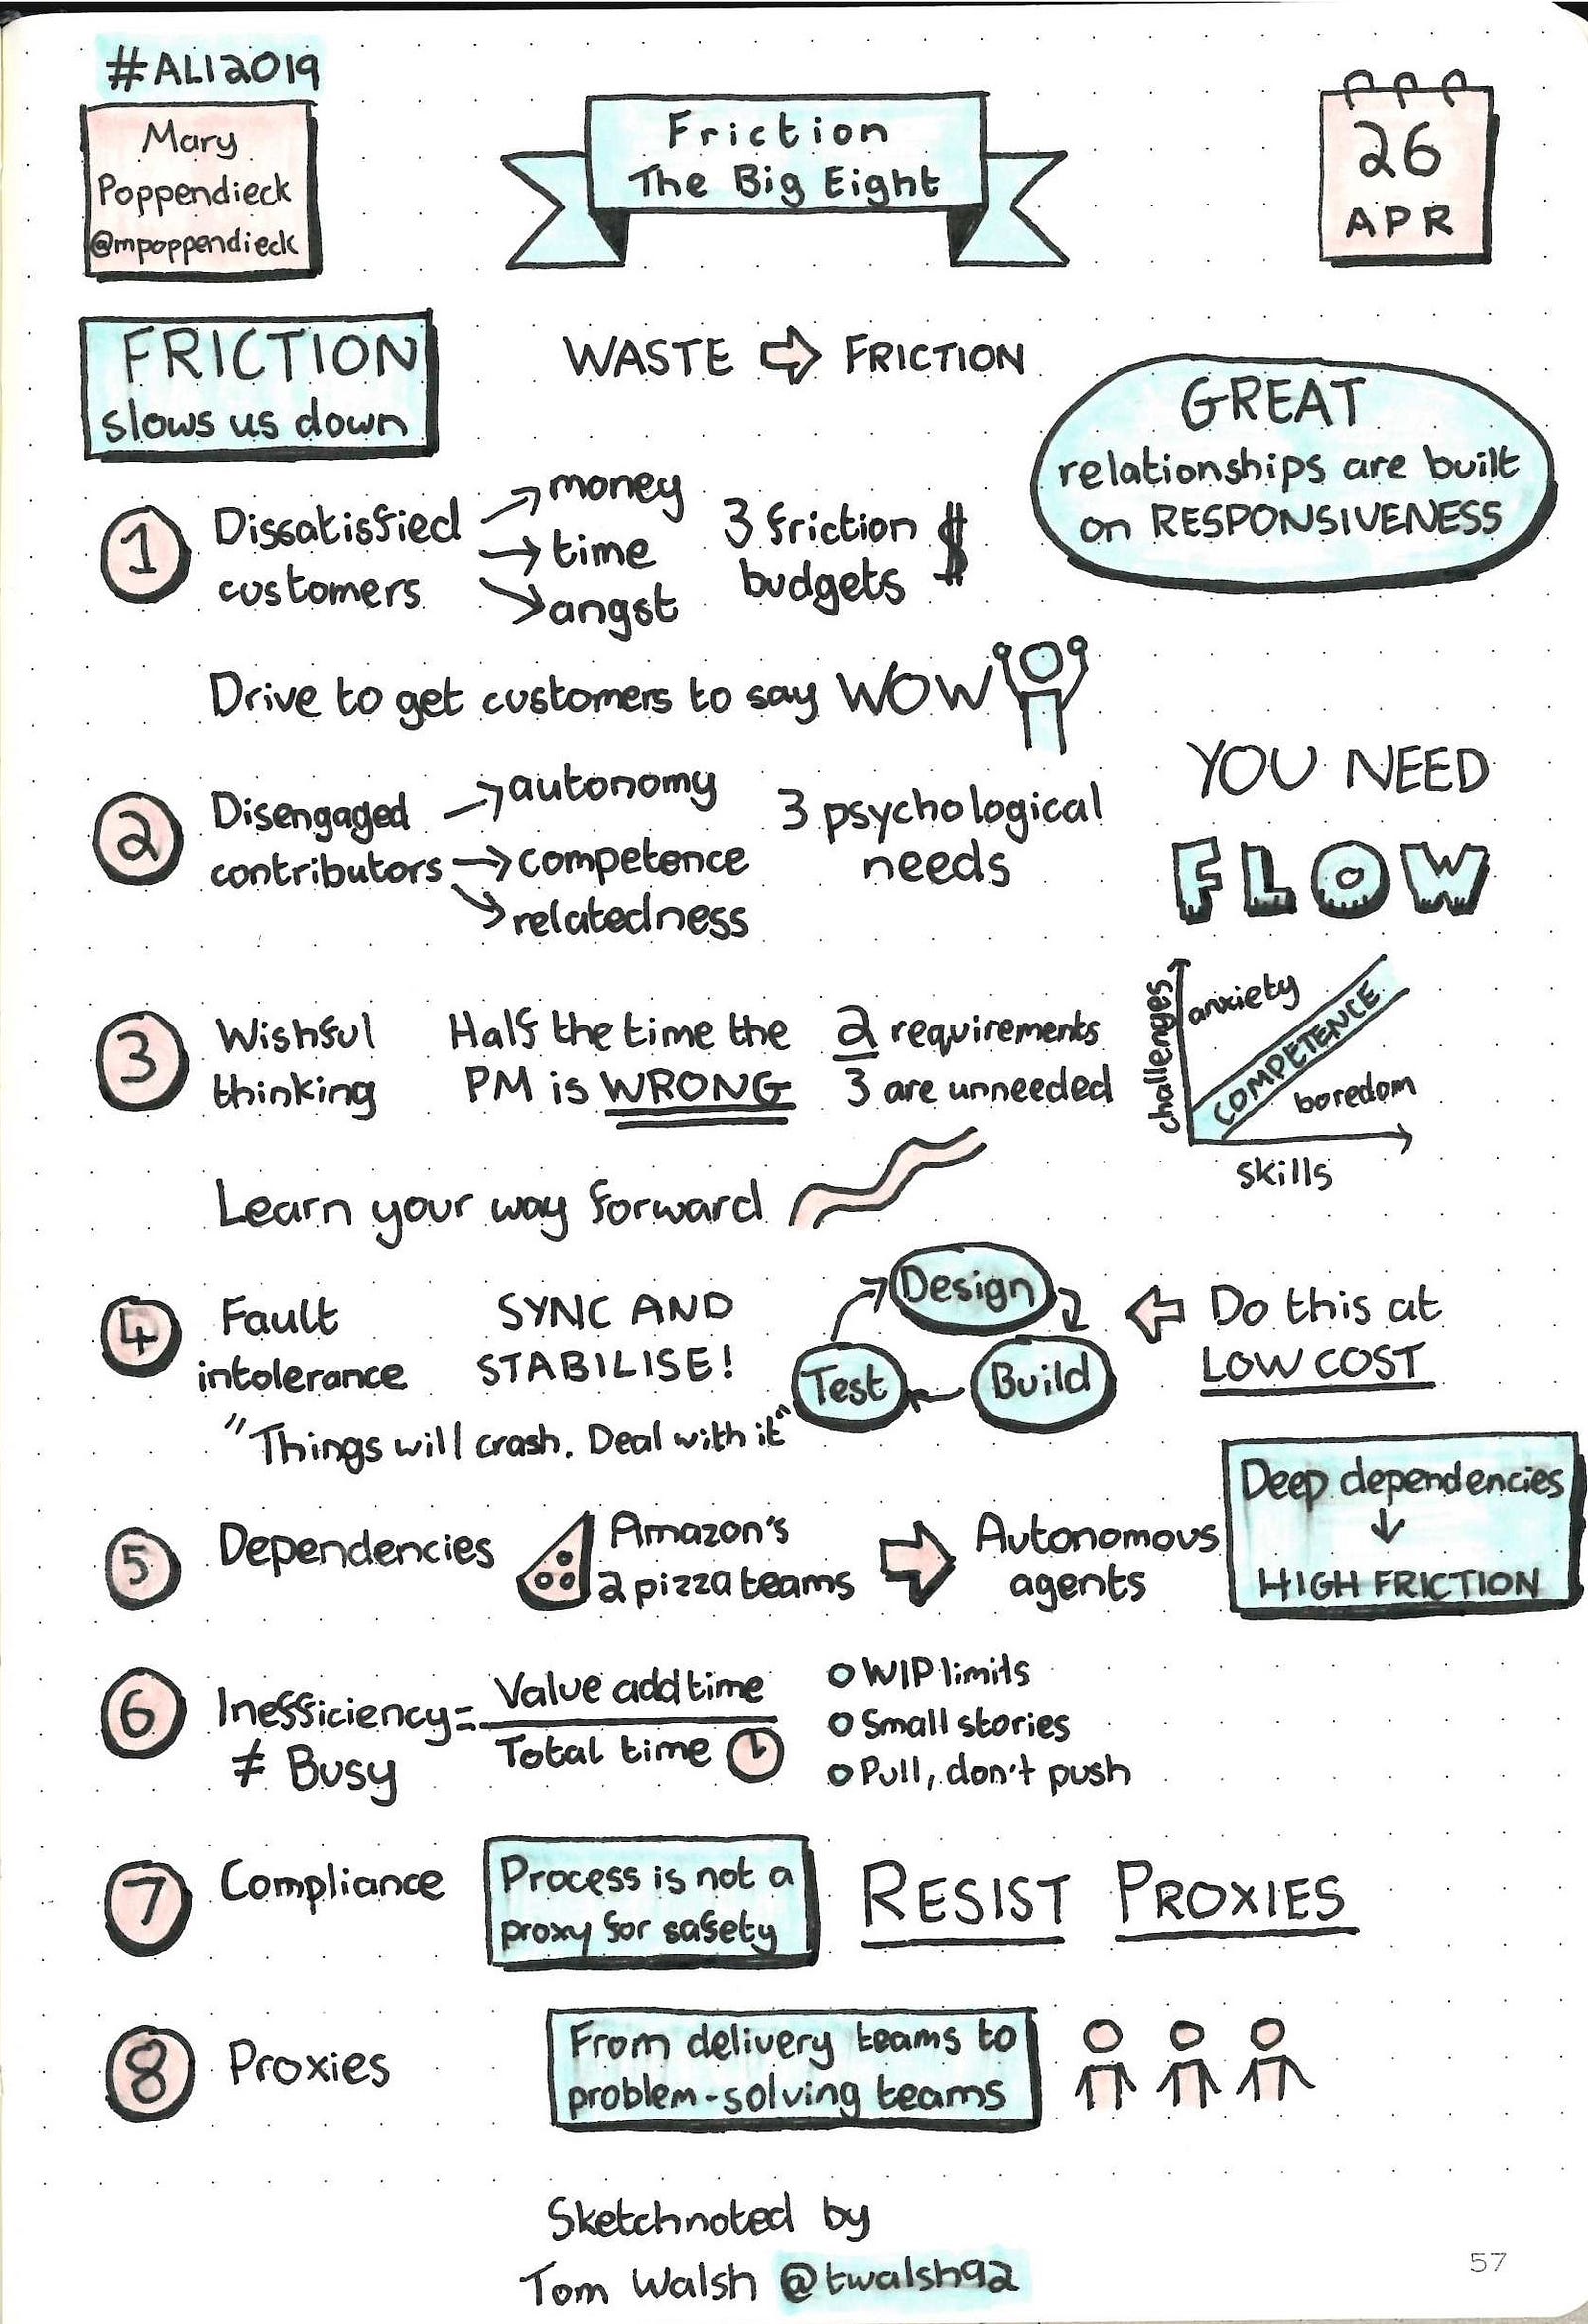 #ALI2019
Mary
Poppendieck
@mpoppendieck
Friction
The Big Eight
26
APR
FRICTION
slows us down
WASTE ⇨ FRICTION
GREAT
relationships are built
on RESPONSIVENESS
1 Dissatisfied
customers
→ money
→ time
→ angst
3 friction
budgets $
Drive to get customers to say WOW
2 Disengaged
contributors
→ autonomy
→ competence
→ relatedness
3 psychological
needs
YOU NEED
FLOW
challenges
anxiety
COMPETENCE
boredom
skills
3 Wishful
thinking
Half the time the
PM is WRONG
2 requirements
3 are unneeded
Learn your way forward
4 Fault
intolerance
SYNC AND
STABILISE!
Design
Build
Test
⇦ Do this at
LOW COST
"Things will crash. Deal with it"
5 Dependencies
Amazon's
2 pizza teams
⇨ Autonomous
agents
Deep dependencies
↓
HIGH FRICTION
6 Inefficiency =
≠ Busy
Value add time
Total time
○ WIP limits
○ Small stories
○ Pull, don't push
7 Compliance
Process is not a
proxy for safety
RESIST PROXIES
8 Proxies
From delivery teams to
problem-solving teams
Sketchnoted by
Tom Walsh @twalsh92
57